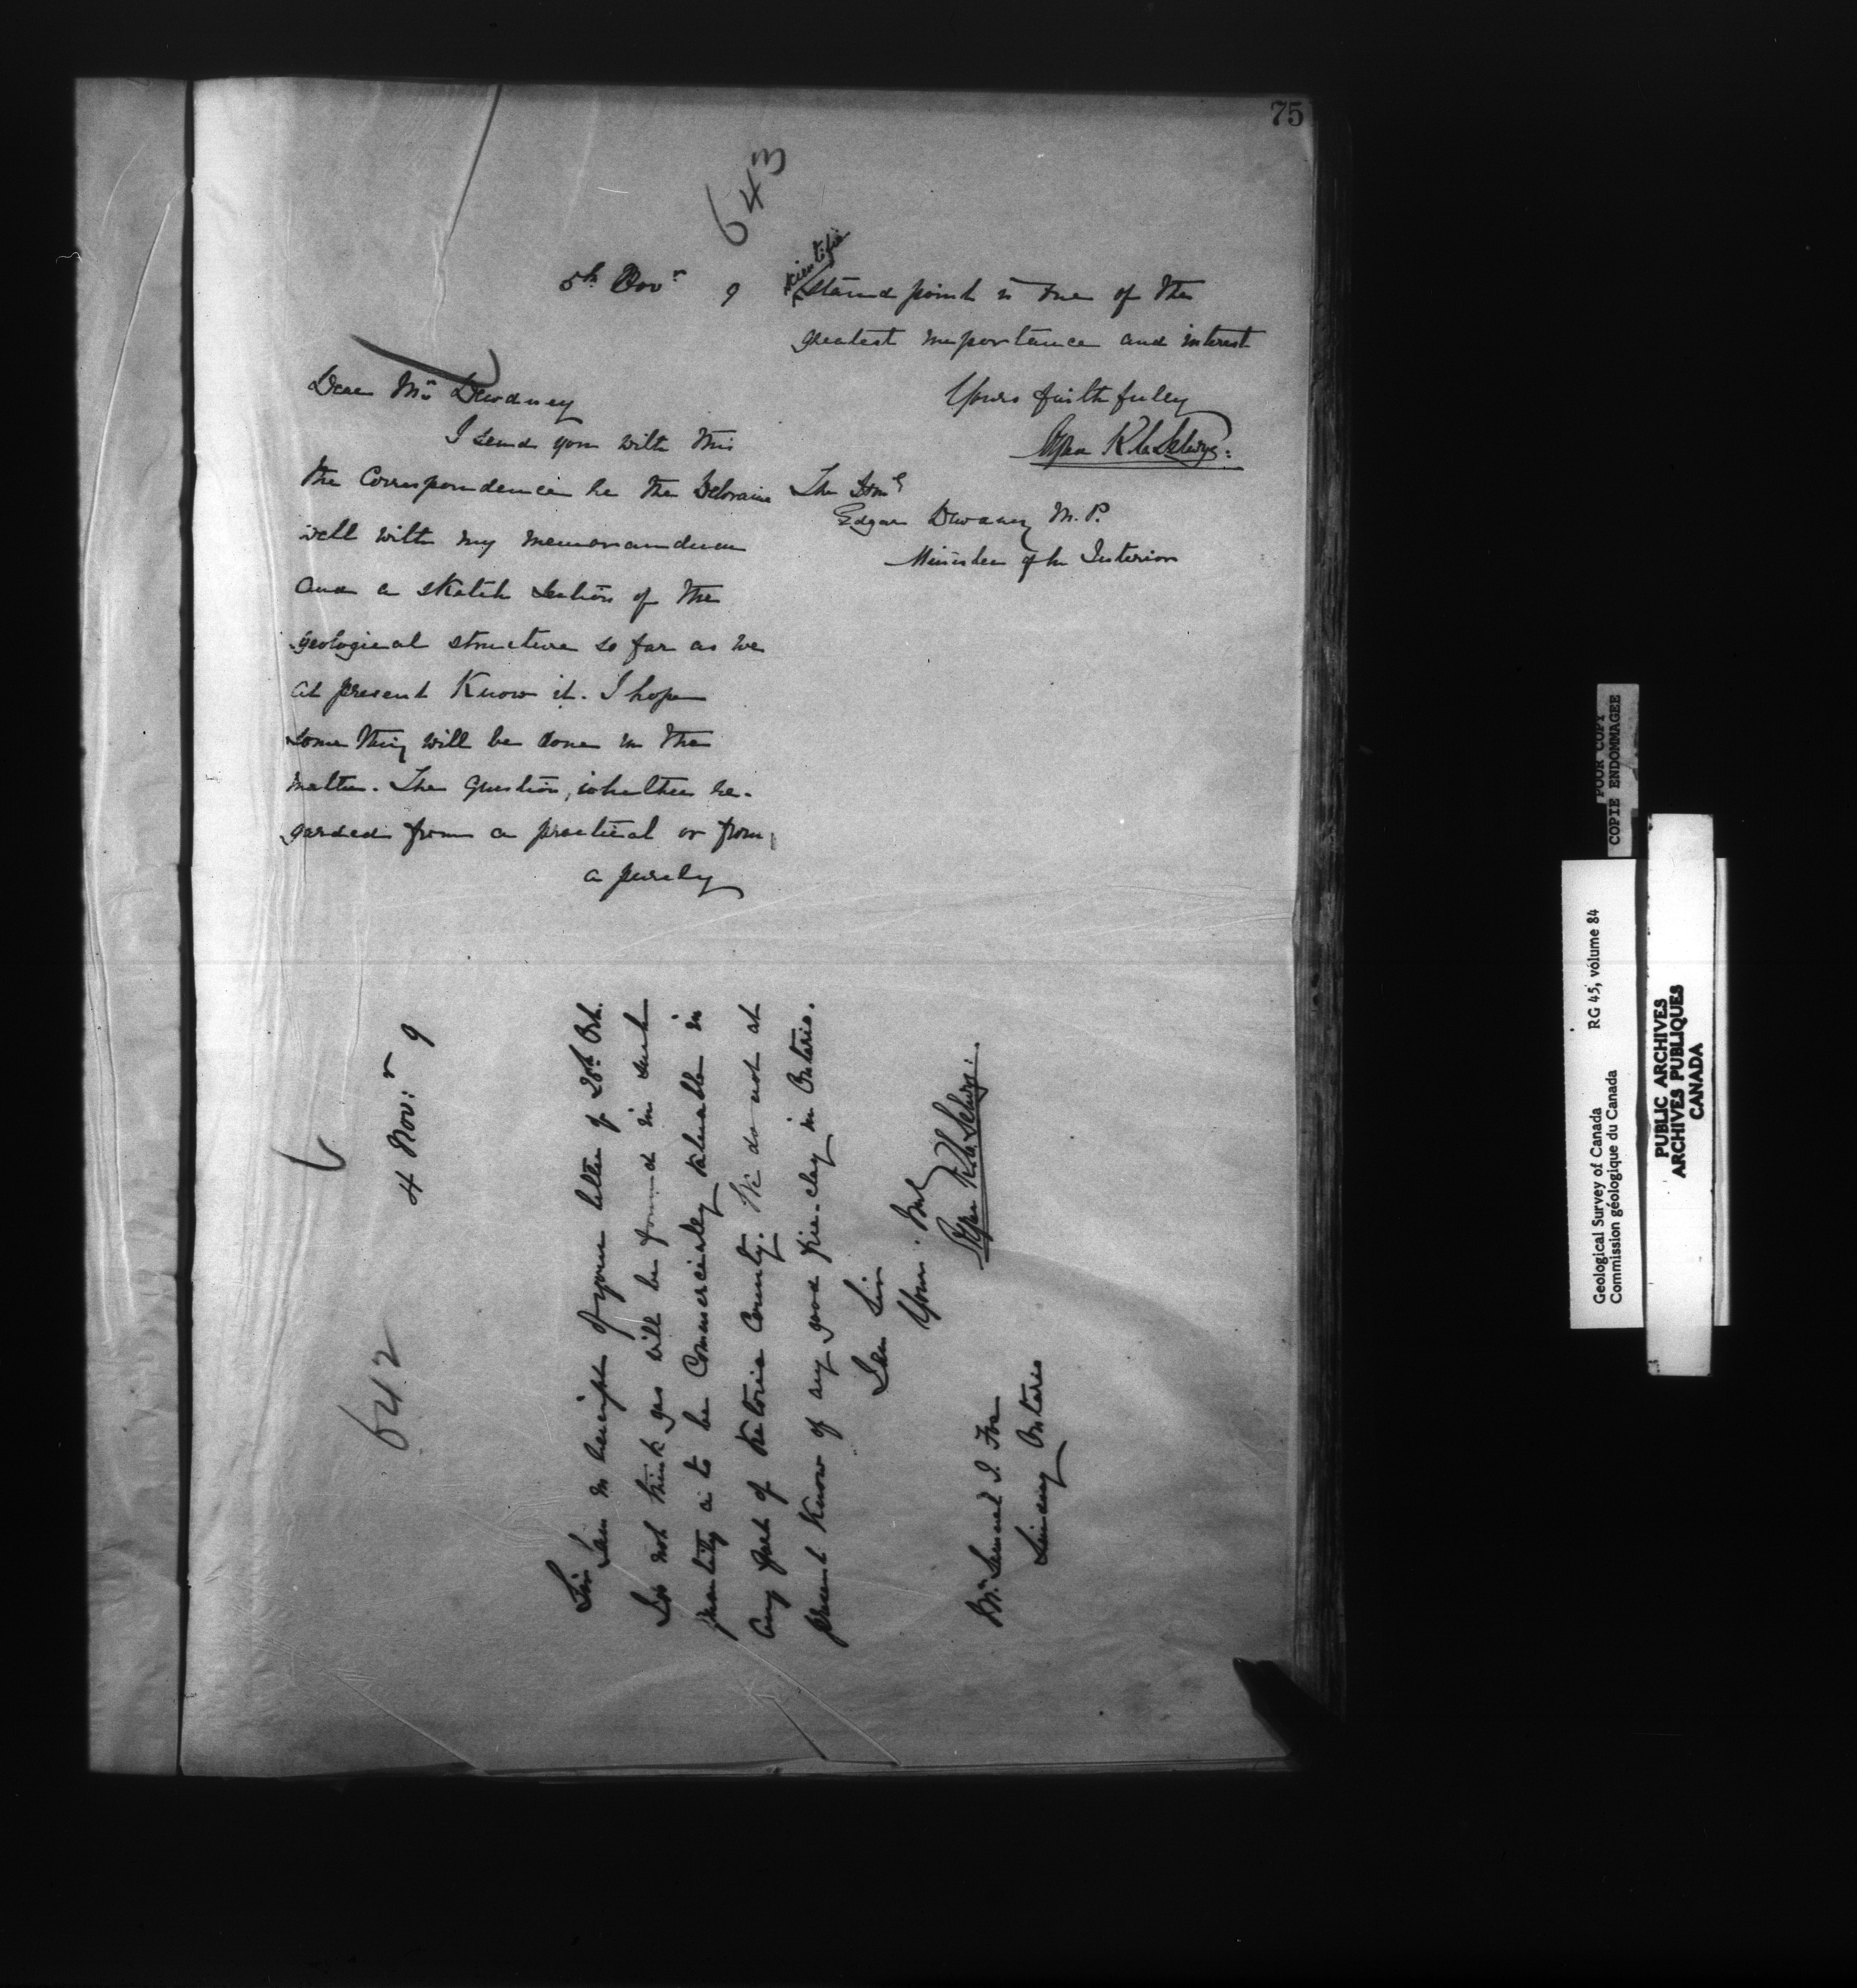 75
643
5th Novr 9
Dear Mr Dewdney
I send you with this
the Correspondence re the Deloraine
well with my memorandum
and a sketch section of the
geological structure so far as we
at present Know it. I hope
some thing will be done in the
matter. The question, whether re-
garded from a practical or from
a purely
scientific
stand point is one of the
greatest importance and interest
Yours faithfully
Alfred R C Selwyn.
The Honl
Edgar Dewdney M.P.
Minister of the Interior
642
4 Novr 9
Sir
I am in receipt of your letter of 28th Oct.
I do not think gas will be found in such
quantity as to be Commercially valuable in
any part of Victoria County. We do not at
present Know of any good fire-clay in Ontario.
I am Sir
Your
Alfred R. C. Selwyn.
Mr Samuel J. Fox
Lindsay Ontario
POOR COPY
COPIE ENDOMMAGEE
Geological Survey of Canada RG 45, volume 84
Commission géologique du Canada
PUBLIC ARCHIVES
ARCHIVES PUBLIQUES
CANADA